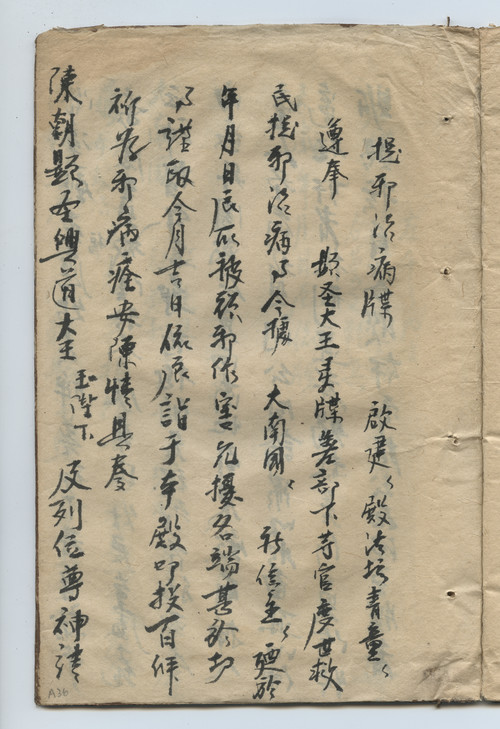 捉邪治病牒 啟建〻殿法坛青童〻
遵奉 顯圣大王灵牒差部下等官度世救
民捉邪治病事今據 大南國〻 信主〻 廼於
年月日辰所被邪作害冗擾各端甚於切
事謹取今月吉日依辰詣于本殿叩投百
祈为邪病痊安陳情具奏
陳朝顯圣興道大王 玉陛下 及列位尊神
A36